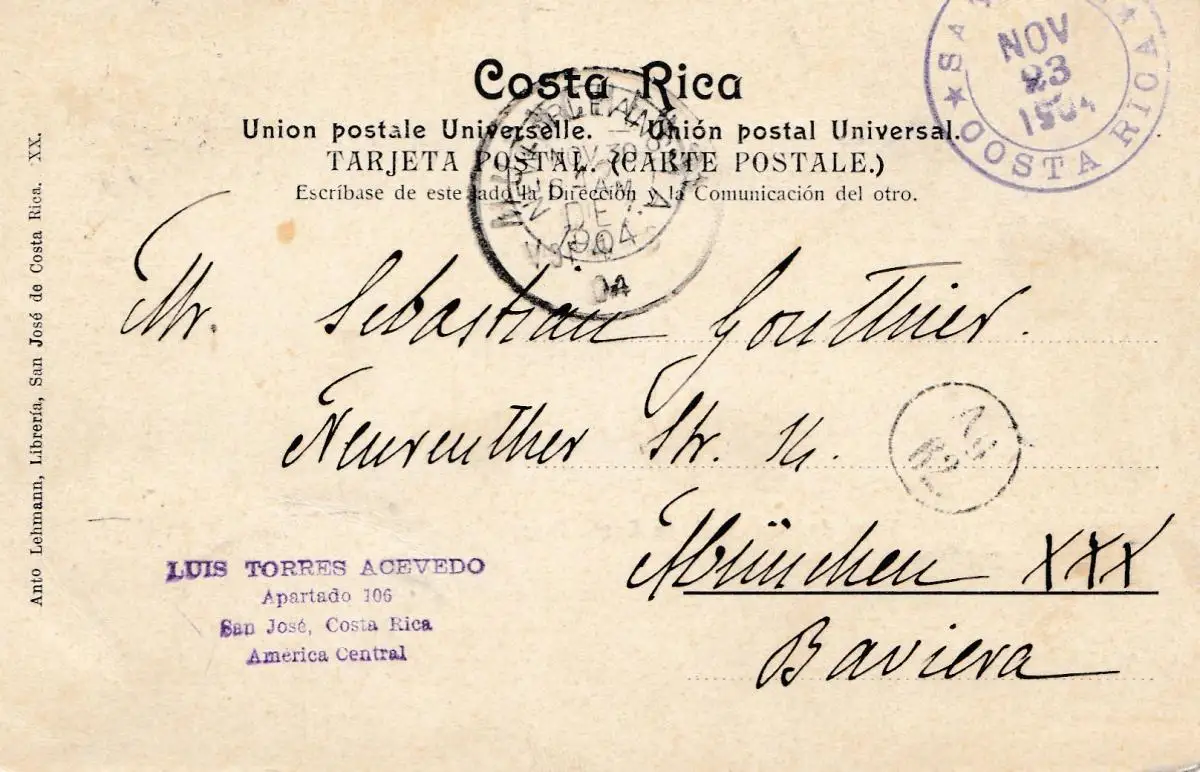 Costa Rica
Union postale Universelle. — Unión postal Universal.
TARJETA POSTAL. (CARTE POSTALE.)
Escríbase de este lado la Dirección y la Comunicación del otro.
NOV
23
1904
COSTA RICA
NEW ORLEANS
NOV 30
6 AM
1904
Mr. Sebastian Gouthier.
Neureuther Str.
München XXX
Baviera
LUIS TORRES ACEVEDO
Apartado 106
San José, Costa Rica
América Central
Anto Lehmann, Librería, San José de Costa Rica. XX.